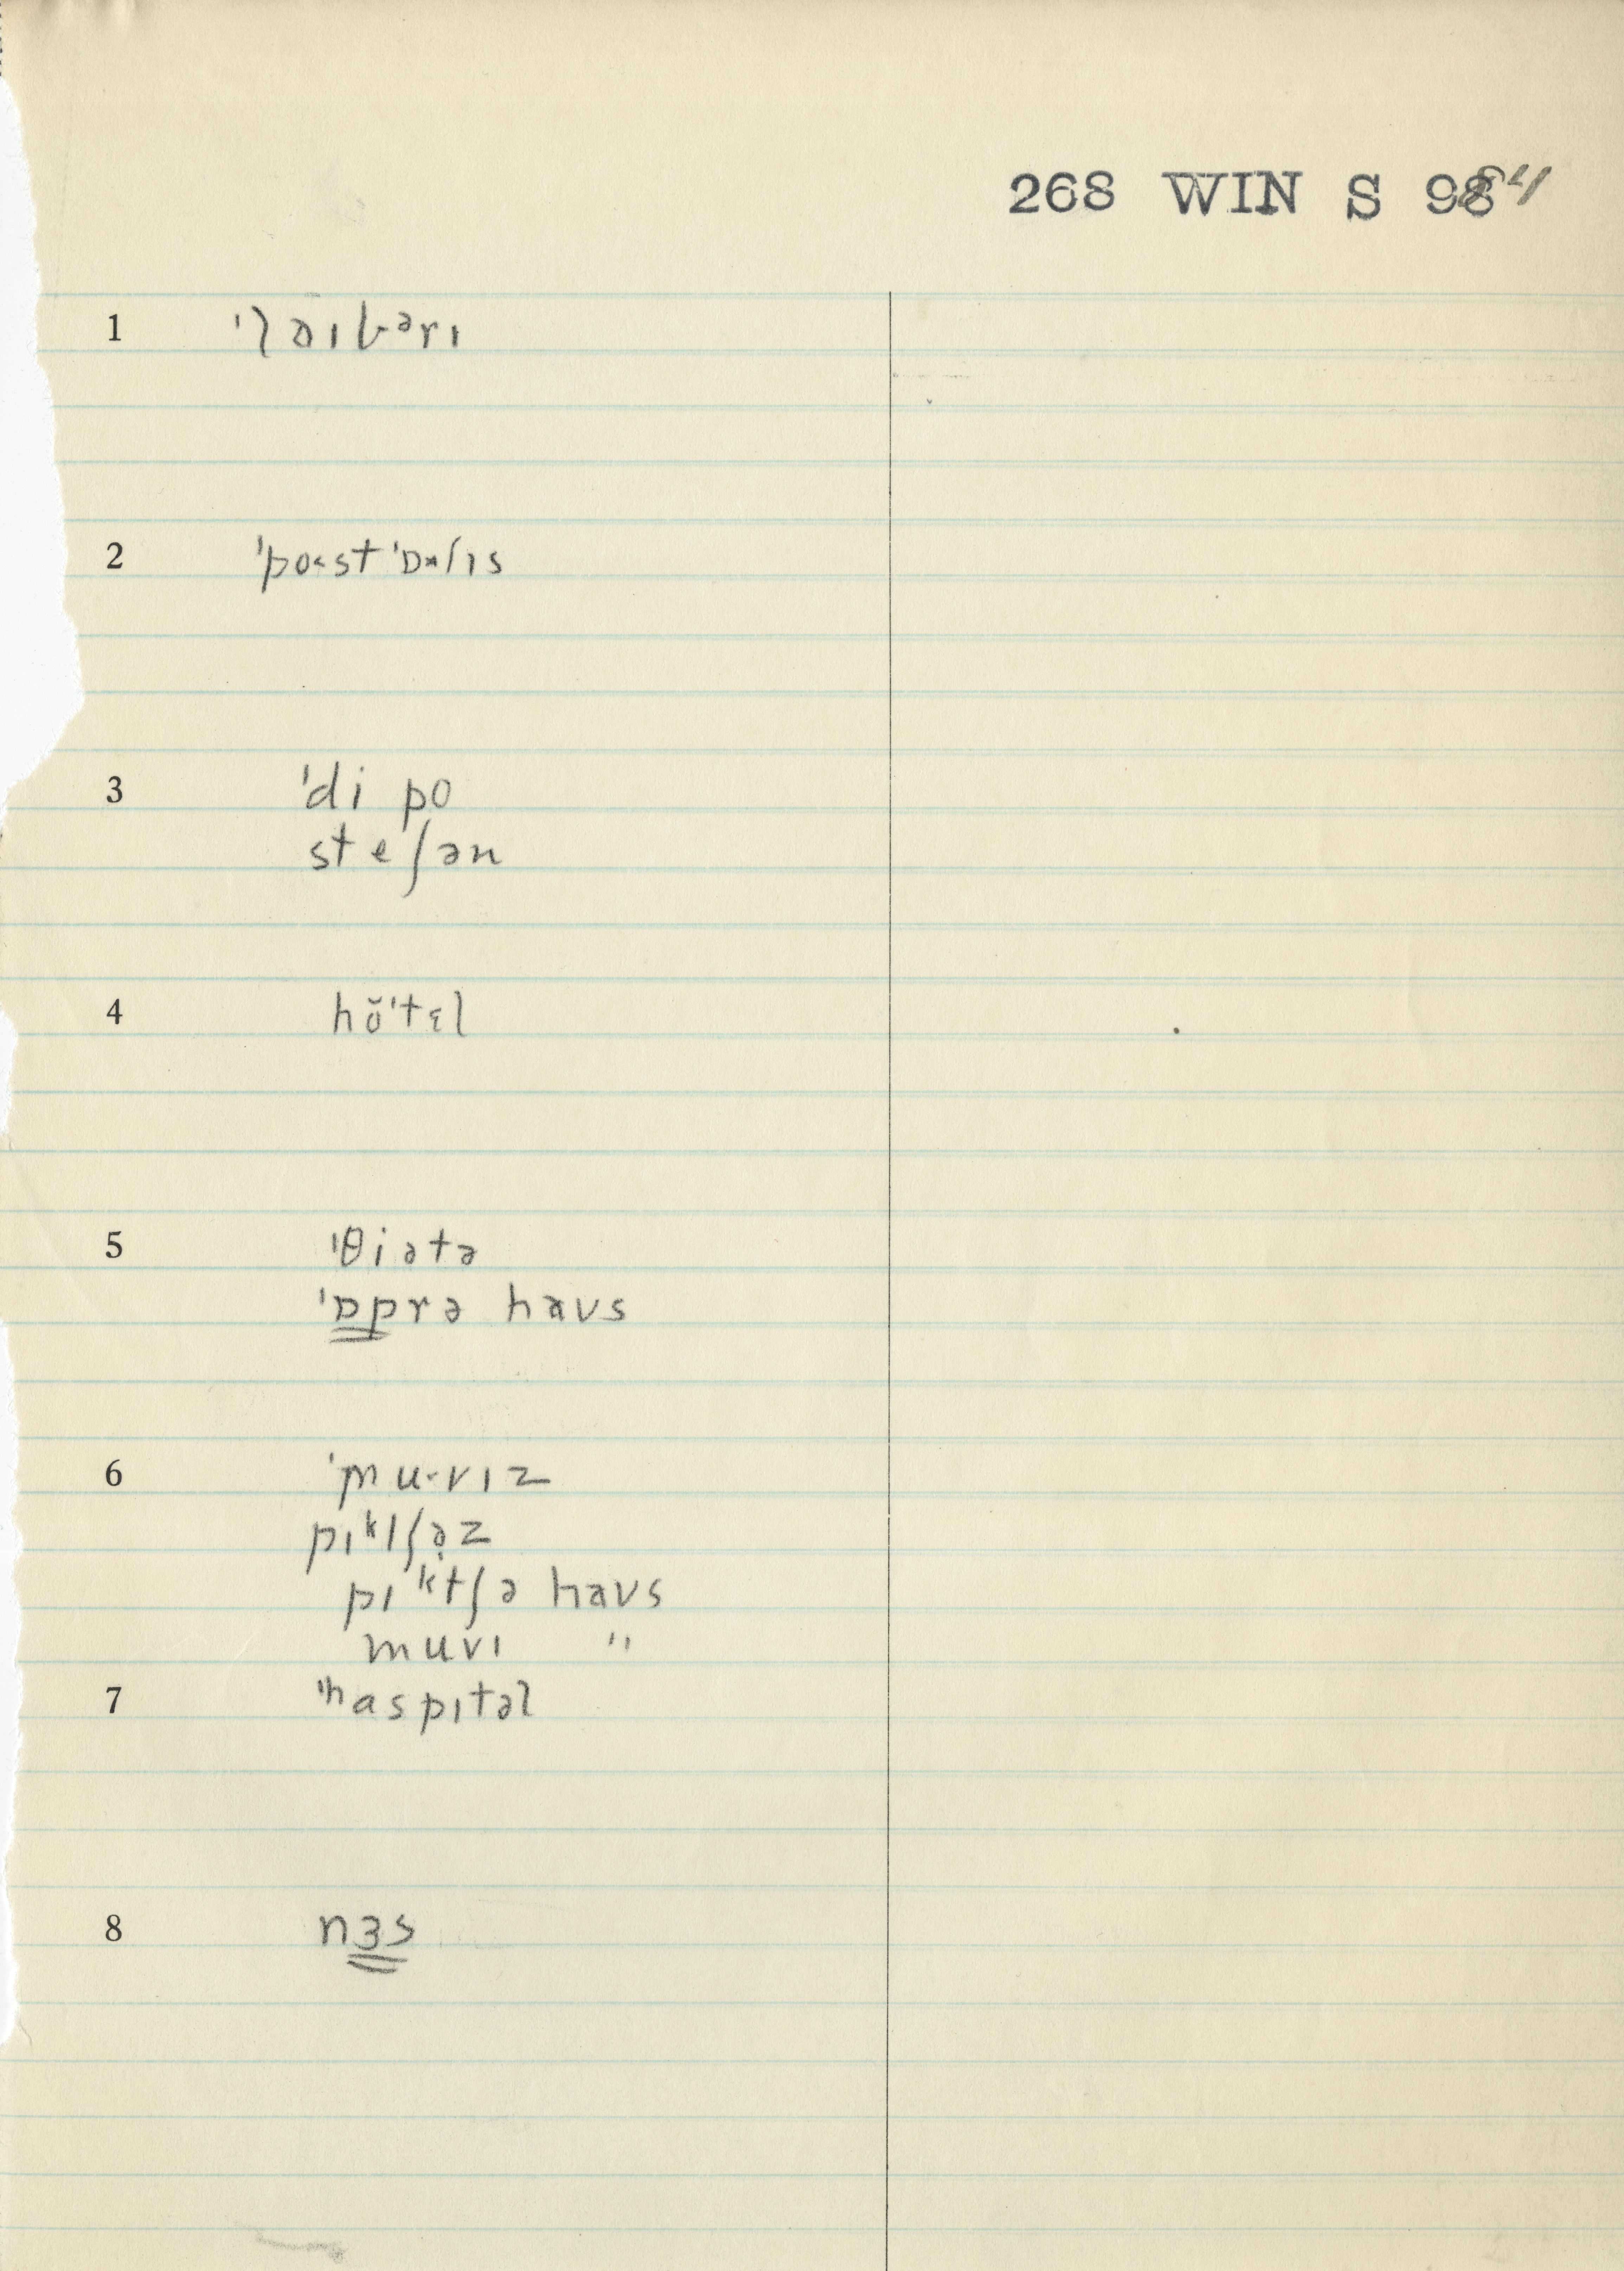 268 WIN S 98 84
1 ˈlaɪbᵊrɪ
2 ˈpo˂st ˈɒ˄fɪs
3 ˈdi po
steʃən
4 hŏˈtɛl
5 ˈθiətə
ˈɒprə haʊs
6 ˈmu˞vɪz
pɪᵏtʃə̣z
pɪᵏtʃə haʊs
muvɪ "
7 ˈhaspɪtəl
8 nɜs